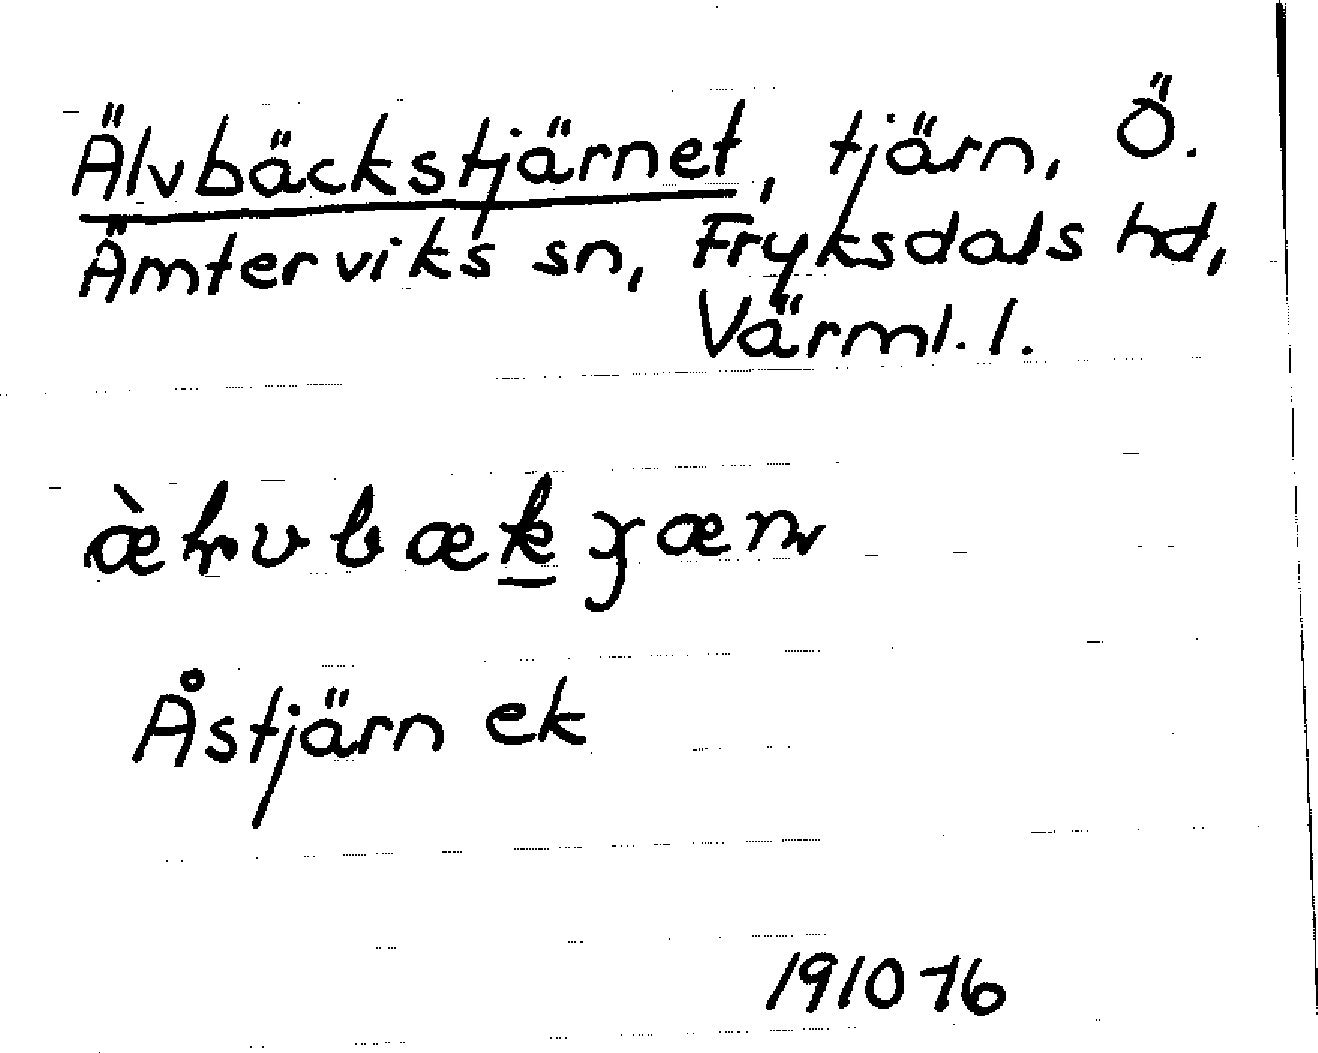 Älvbäckstjärnet, tjärn, Ö.
Ämterviks sn, Fryksdals hd,
Värml. l.
Åstjärn ek
1910-16